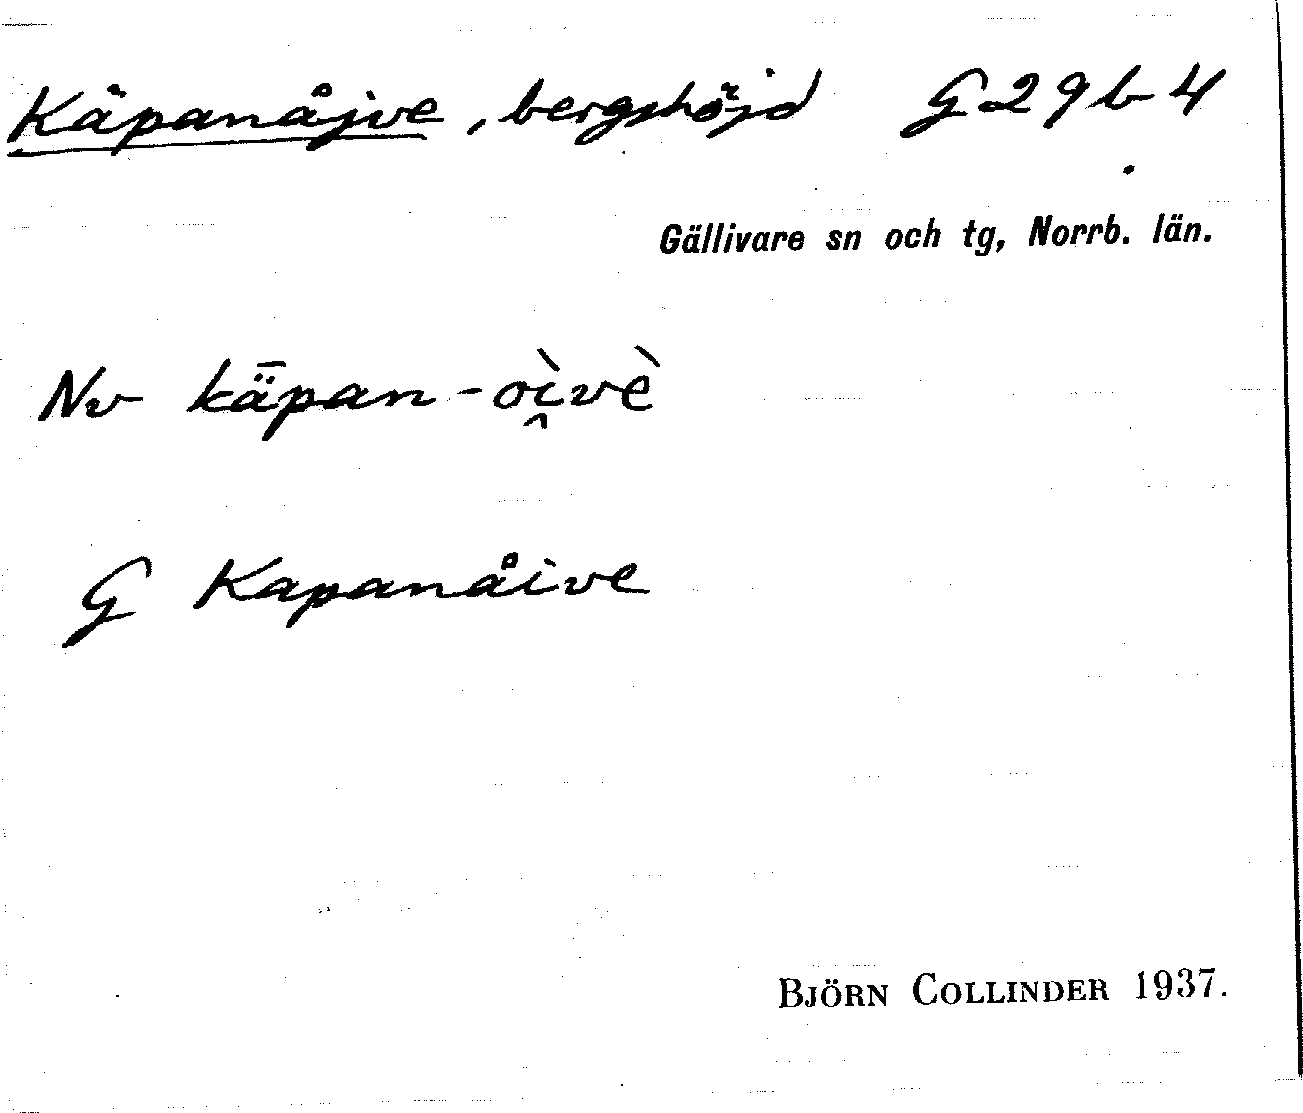 Käpanåjve, bergshöjd G 29 b 4
Gällivare sn och tg, Norrb. län.
Nv kǟpan-oì̭vè
G Kapanåive
BJÖRN COLLINDER 1937.